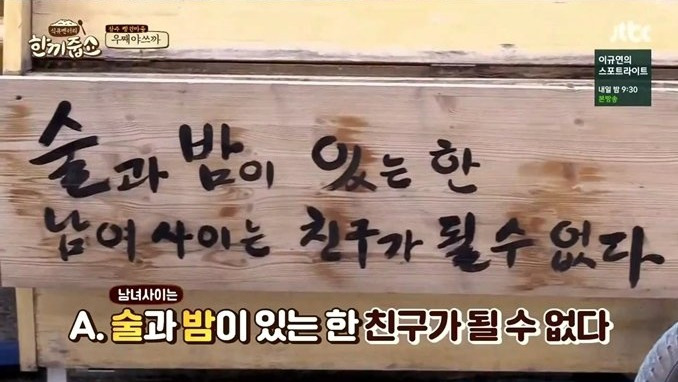 식큐멘터리
한끼줍쇼
우째야쓰까
jtbc
이규연의
스포트라이트
내일 밤 9:30
본방송
술과 밤이 있는 한
남여 사이는 친구가 될 수 없다
남녀사이는
A. 술과 밤이 있는 한 친구가 될 수 없다